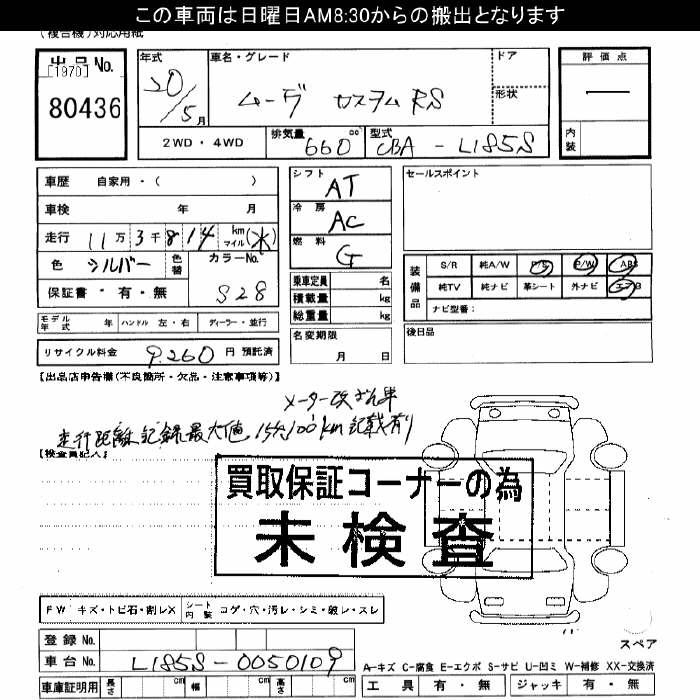 この車両は日曜日AM8:30からの搬出となります
(複合機)対応用紙
出品 No.
[1970]
80436
年式 20/5月
車名・グレード ムーヴ カスタムRS
ドア
形状
評価点
内装
2WD・4WD
排気量 660 cc
型式 CBA-L185S
車歴 自家用・( )
車検 年 月
走行 11万3千814 km マイル(*)
色 シルバー 色替 カラーNo. S28
保証書・有・無
モデル年式 年 ハンドル 左・右 ディーラー・並行
リサイクル料金 9,260 円 預託済
シフト AT
冷房 AC
燃料 G
乗車定員 名
積載量 kg
総重量 kg
名変期限 月 日
セールスポイント
装備品
S/R 純A/W P/S P/W ABS
純TV 純ナビ 革シート 外ナビ エアB
ナビ型番:
後日品
【出品店申告欄(不良箇所・欠品・注意事項等)】
メーター改ざん車
走行距離記録最大値 記載有り
【検査員記入】
買取保証コーナーの為
未検査
FW キズ・トビ石・割レX シート内装 コゲ・穴・汚レ・シミ・破レ・スレ
登録 No.
車台 No. L185S-0050109
車庫証明用 長さ cm 幅 cm 高さ cm
スペア
A-キズ C-腐食 E-エクボ S-サビ U-凹ミ W-補修 XX-交換済
工具 有・無 ジャッキ 有・無